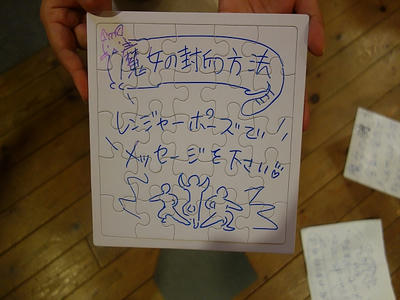 魔女の封印方法
レンジャーポーズで!
メッセージを下さい